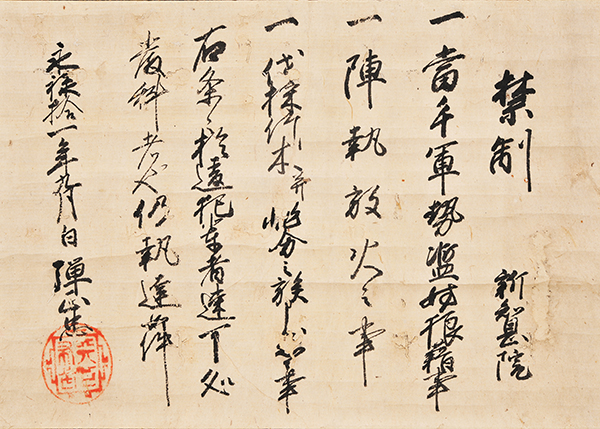 禁制
新 院
一當手軍勢濫妨狼藉事
一陣執放火之事
一伐採竹木并 之族 事
右条々於違犯輩者速可処
嚴科者也仍執達如件
永禄拾一年九月日 弾正忠
天下布武